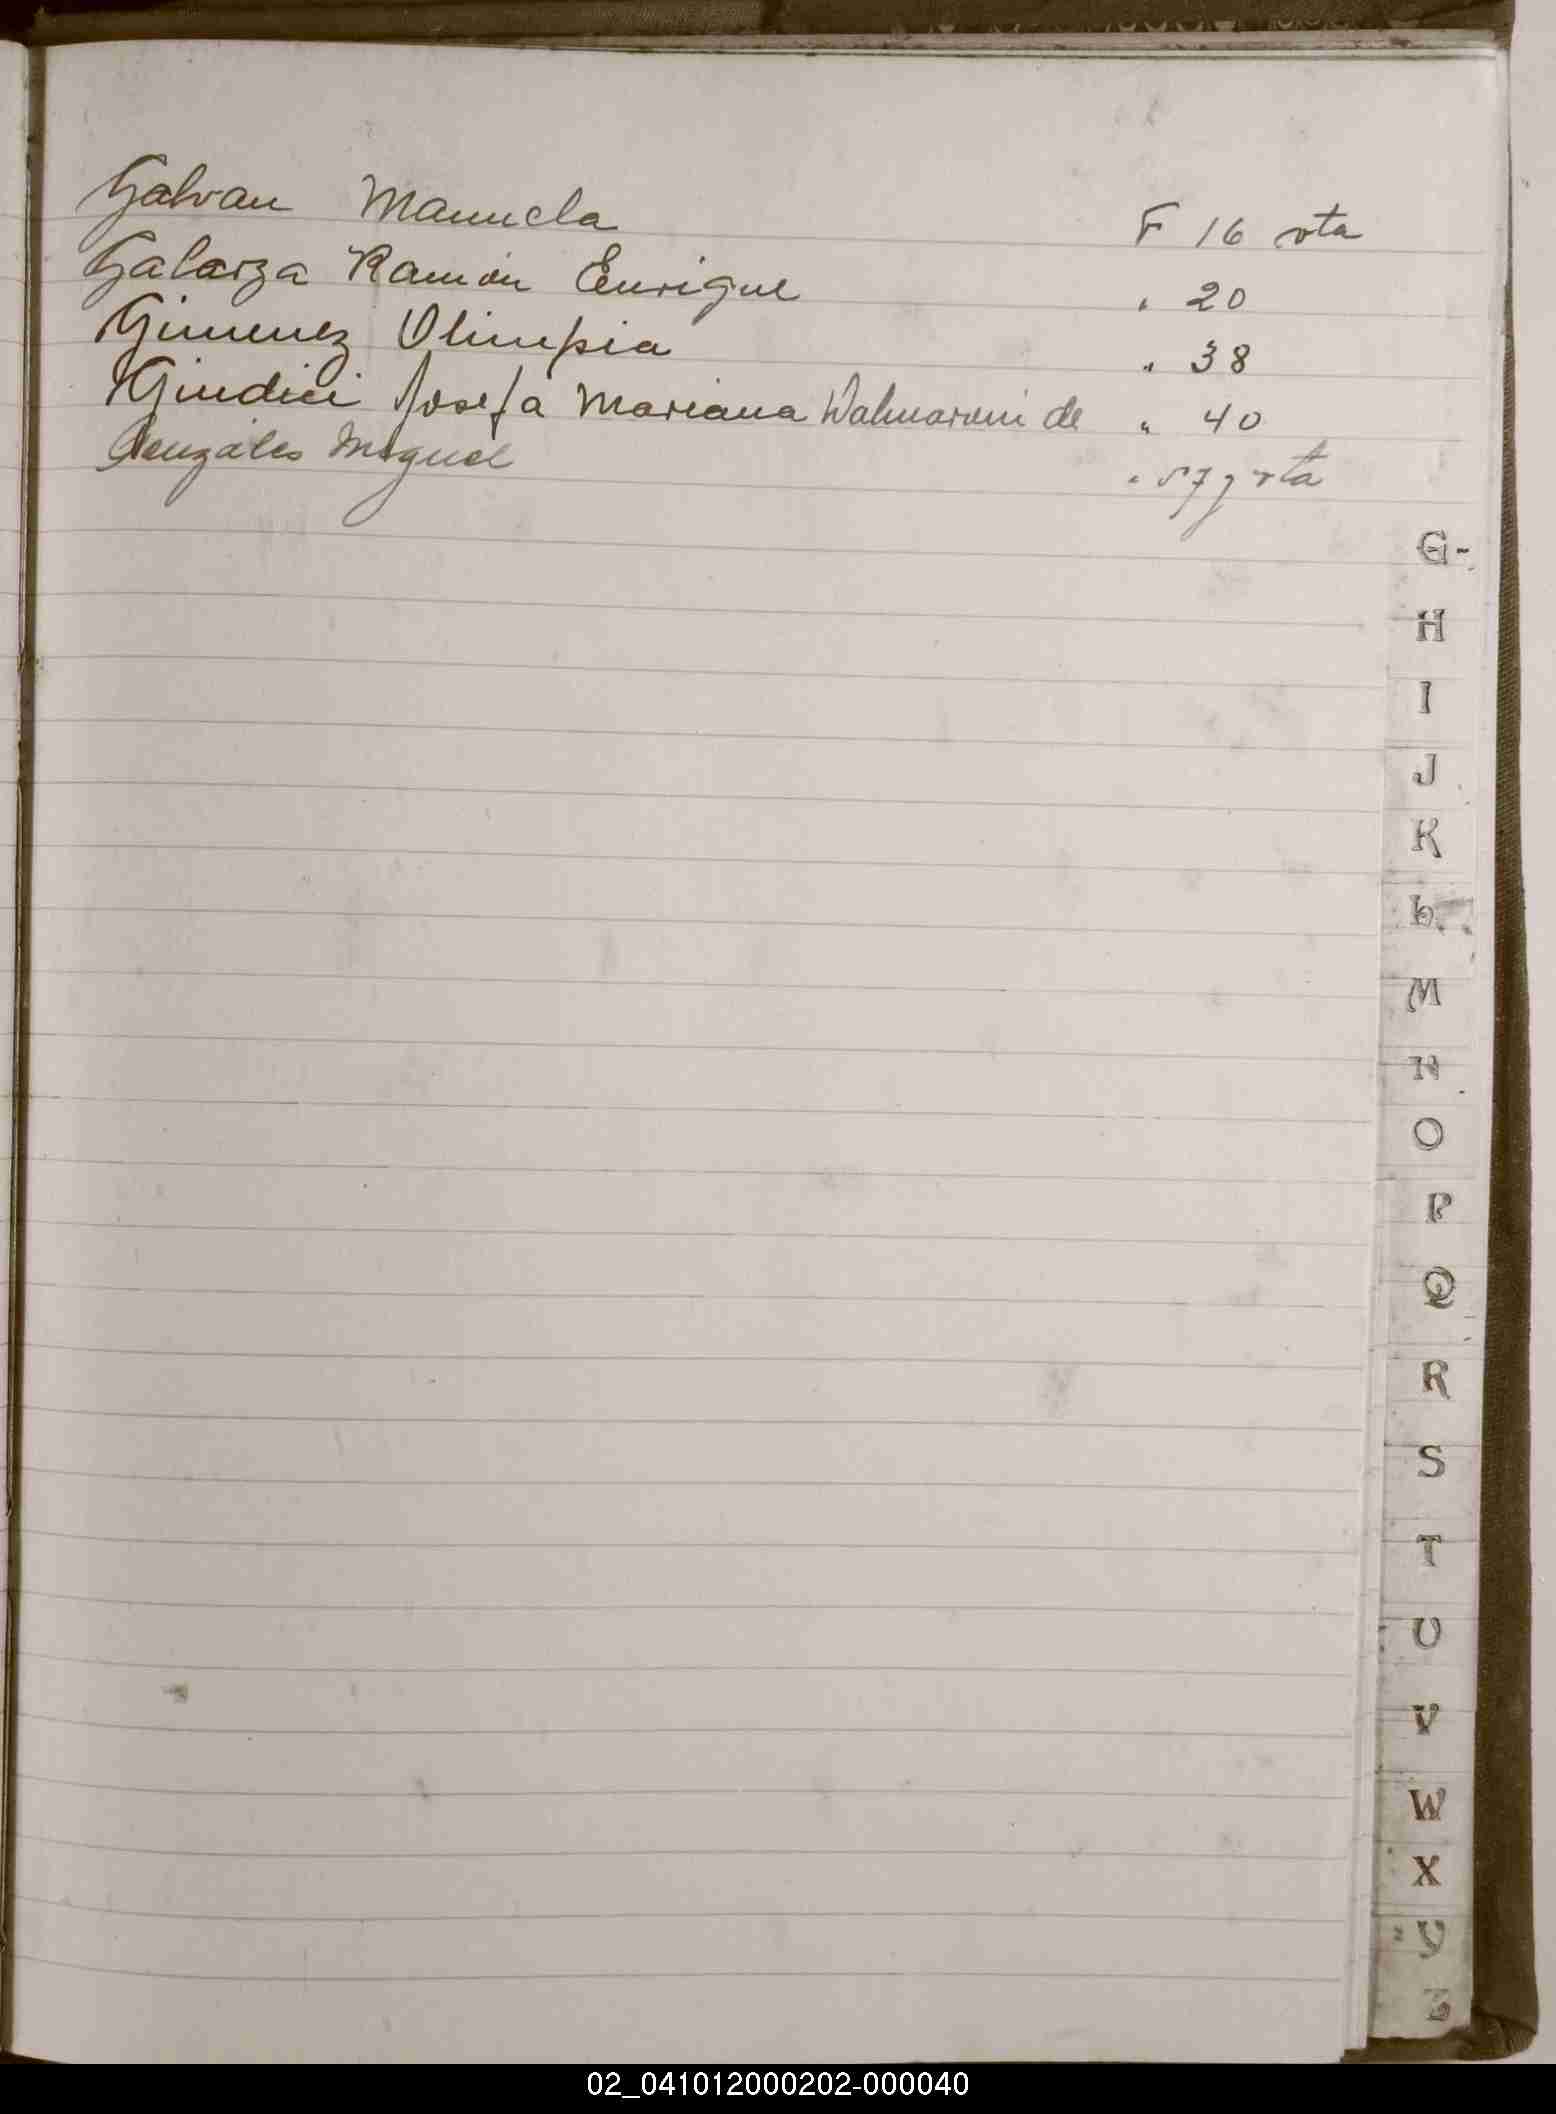 Galvan Manuela F 16 vta
Galarza Ramón Enrique " 20
Gimenez Olimpia " 38
Giudici Josefa Mariana Walmaroni de " 40
Gonzáles Miguel " 57 y vta
G-
H
I
J
K
L
M
N
O
P
Q
R
S
T
U
V
W
X
Y
Z
02_041012000202-000040